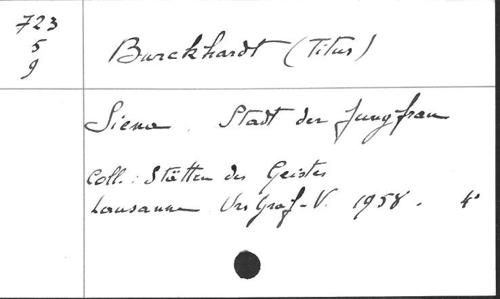 723
5
9
Burckhardt (Titus)
Siena. Stadt der Jungfrau
Coll.: Stätten des Geistes
Lausanne Urs Graf-V. 1958. 4°